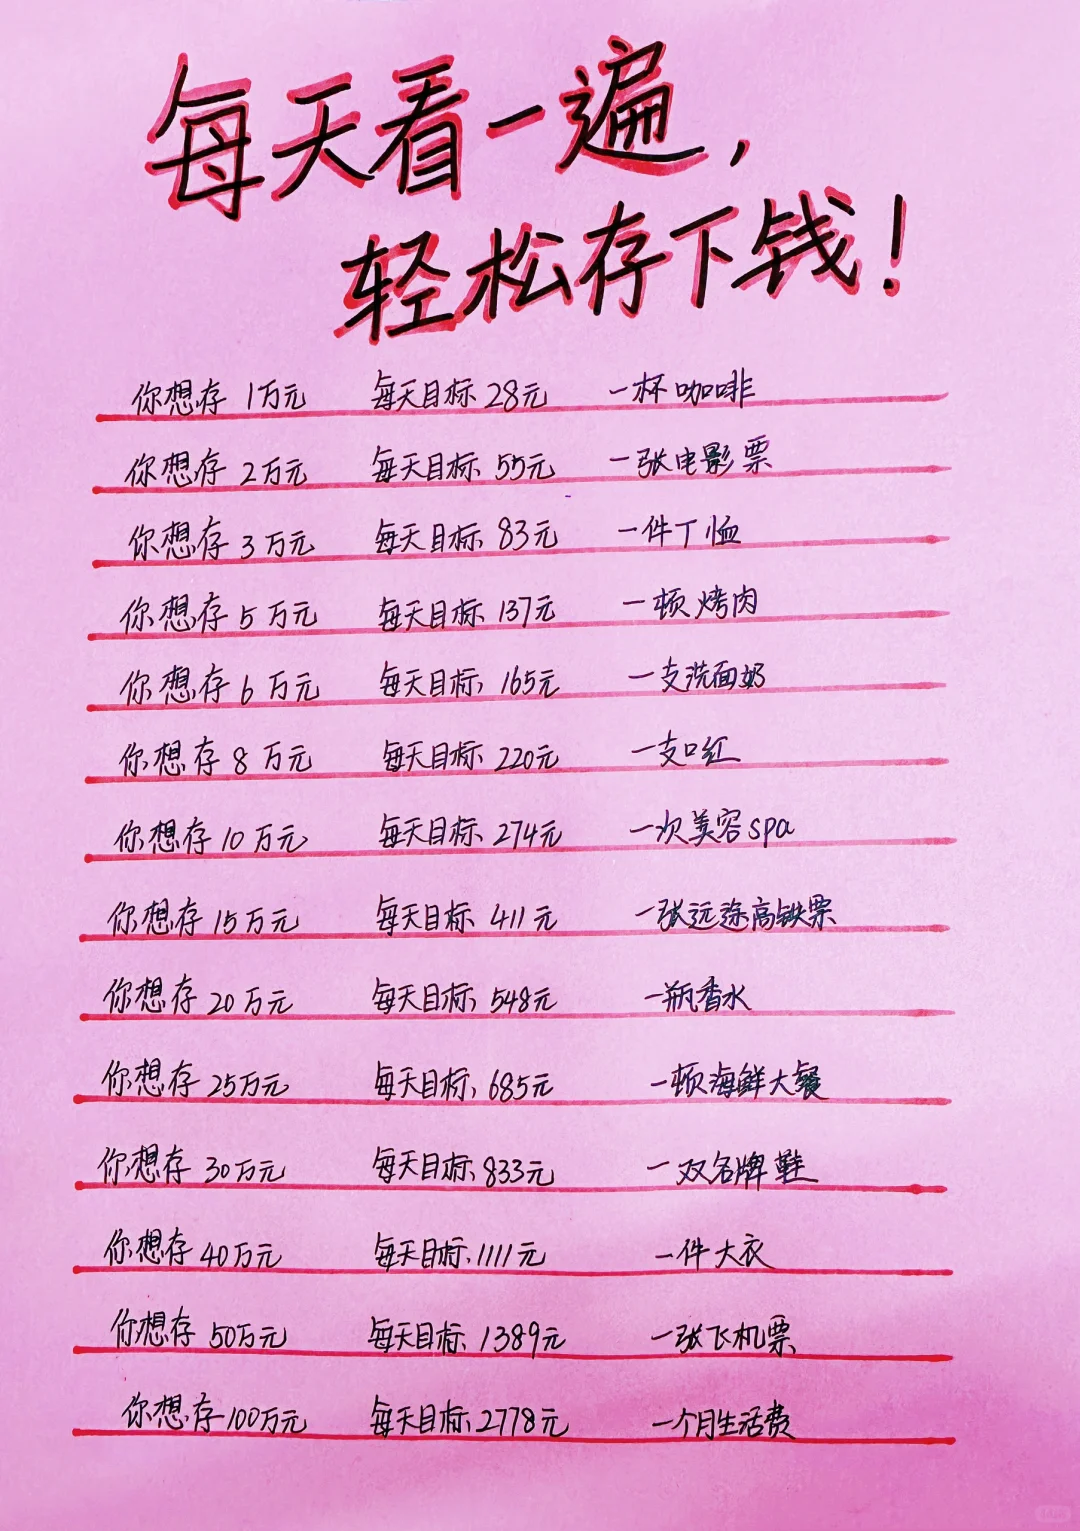 每天看一遍，
轻松存下钱！
你想存 1万元 每天目标 28元 一杯咖啡
你想存 2万元 每天目标 55元 一张电影票
你想存 3万元 每天目标 83元 一件T恤
你想存 5万元 每天目标 137元 一顿烤肉
你想存 6万元 每天目标 165元 一支洗面奶
你想存 8万元 每天目标 220元 一支口红
你想存 10万元 每天目标 274元 一次美容spa
你想存 15万元 每天目标 411元 一张远途高铁票
你想存 20万元 每天目标 548元 一瓶香水
你想存 25万元 每天目标 685元 一顿海鲜大餐
你想存 30万元 每天目标 833元 一双名牌鞋
你想存 40万元 每天目标 1111元 一件大衣
你想存 50万元 每天目标 1389元 一张飞机票
你想存 100万元 每天目标 2778元 一个月生活费